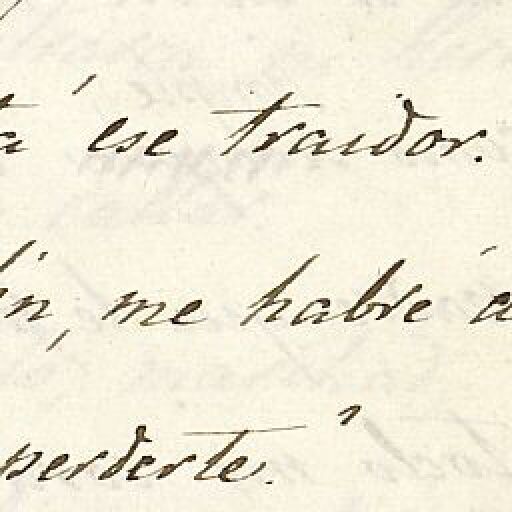 tá ese traidor.
in, me habré a
perderte."